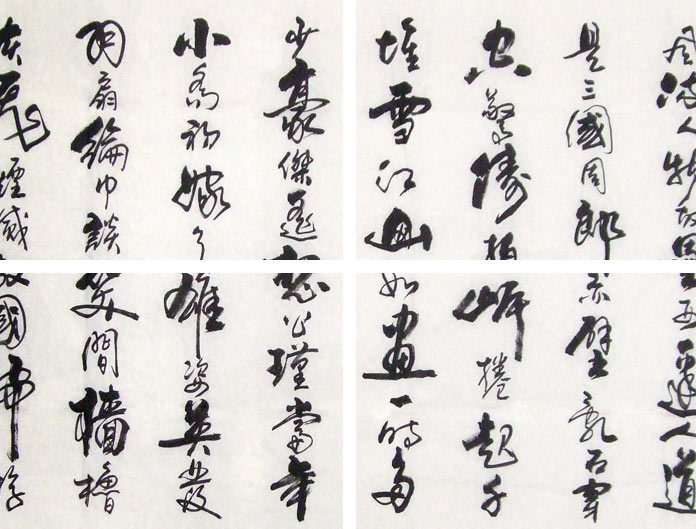 風流人物故壘西邊人道
是三國周郎赤壁亂石穿
空驚濤拍岸捲起千
堆雪江山如畫一時多
少豪傑遙想公瑾當年
小喬初嫁了雄姿英發
羽扇綸巾談笑間檣櫓
灰飛煙滅故國神遊